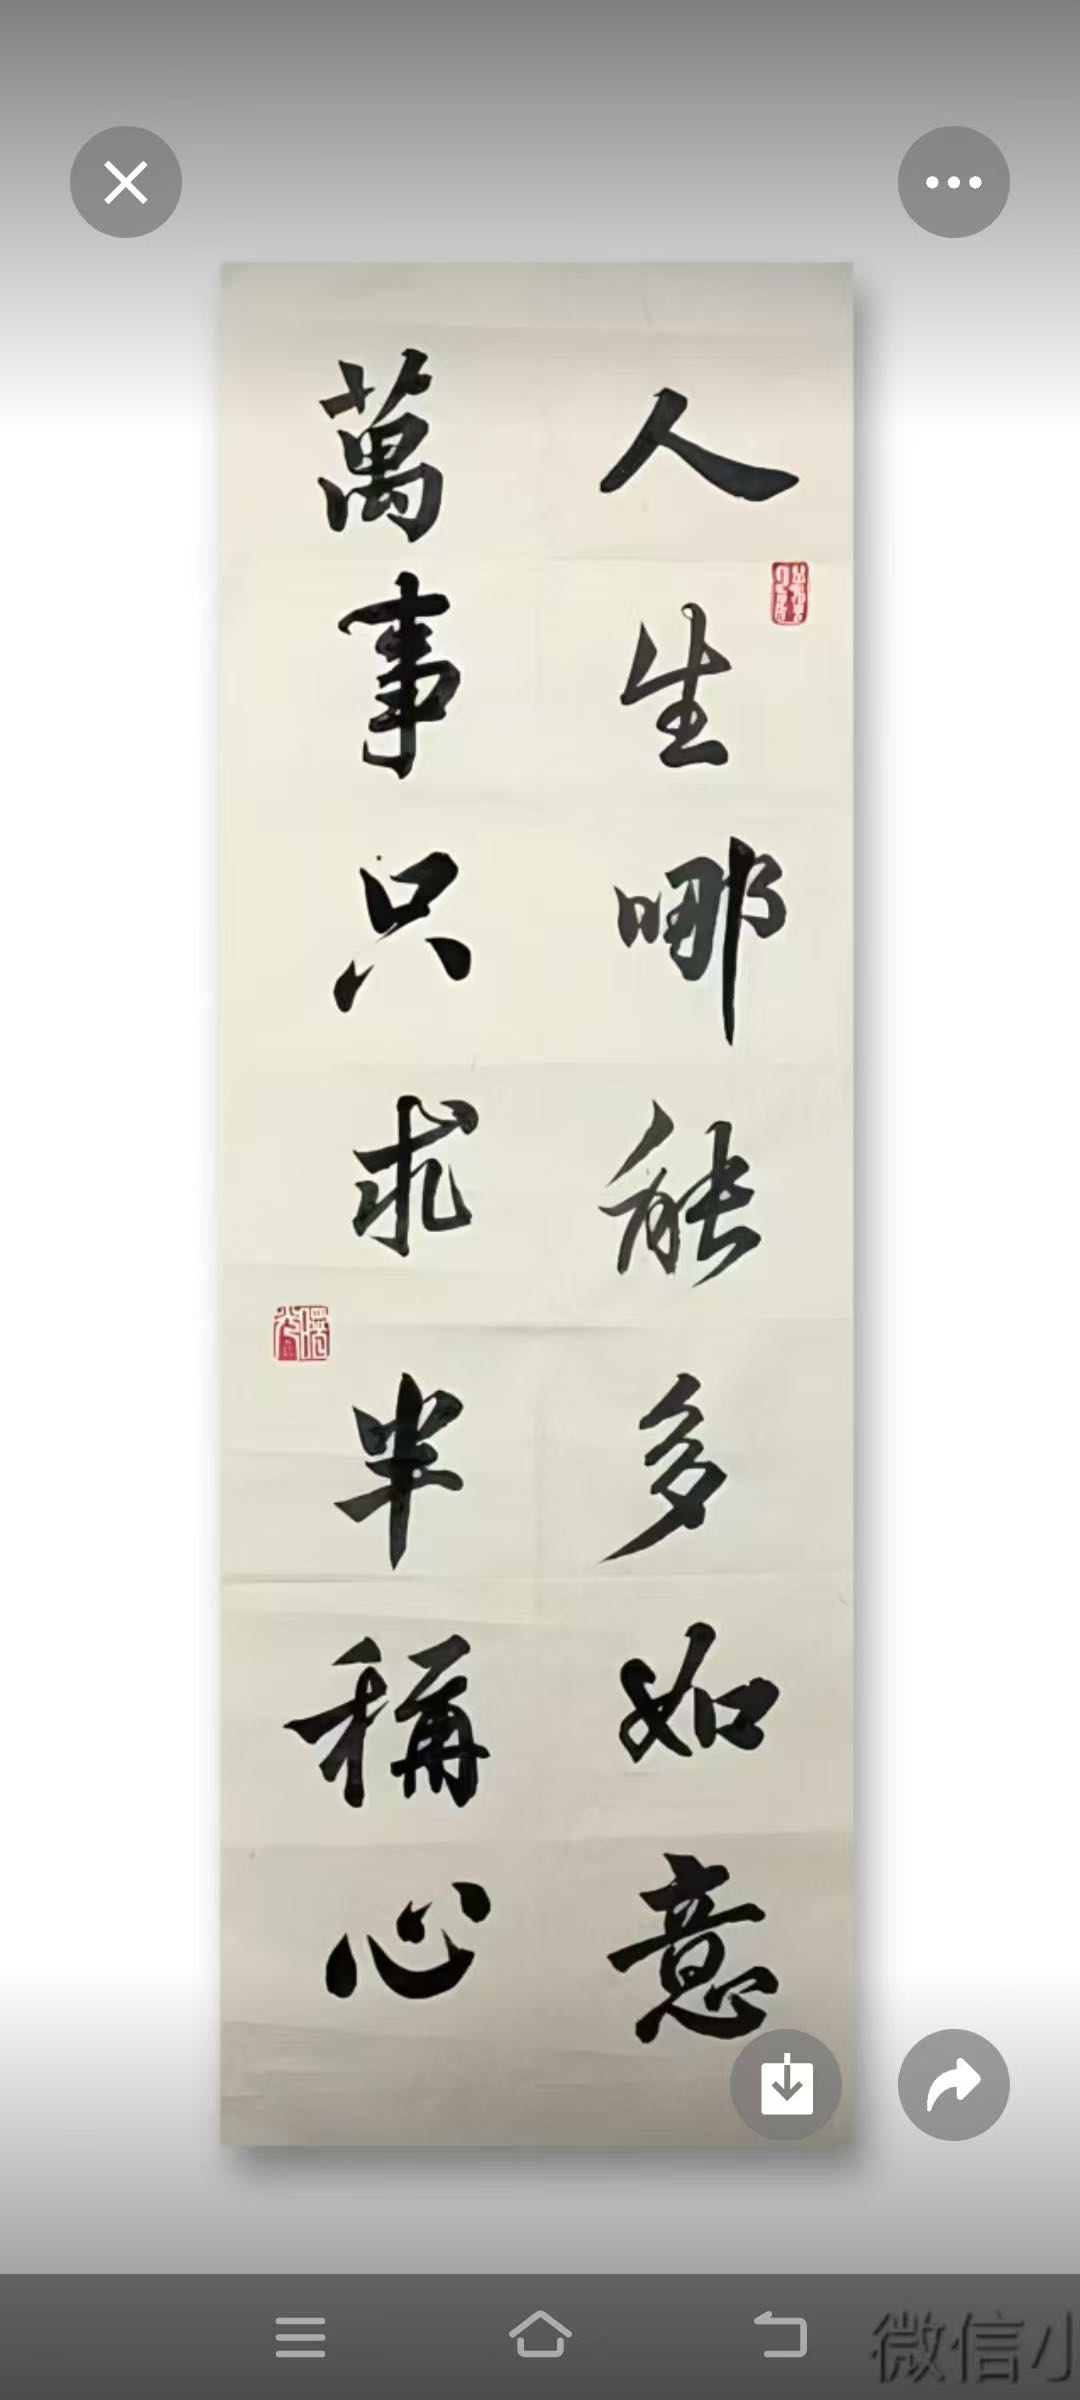 人生哪能多如意
萬事只求半稱心
微信小